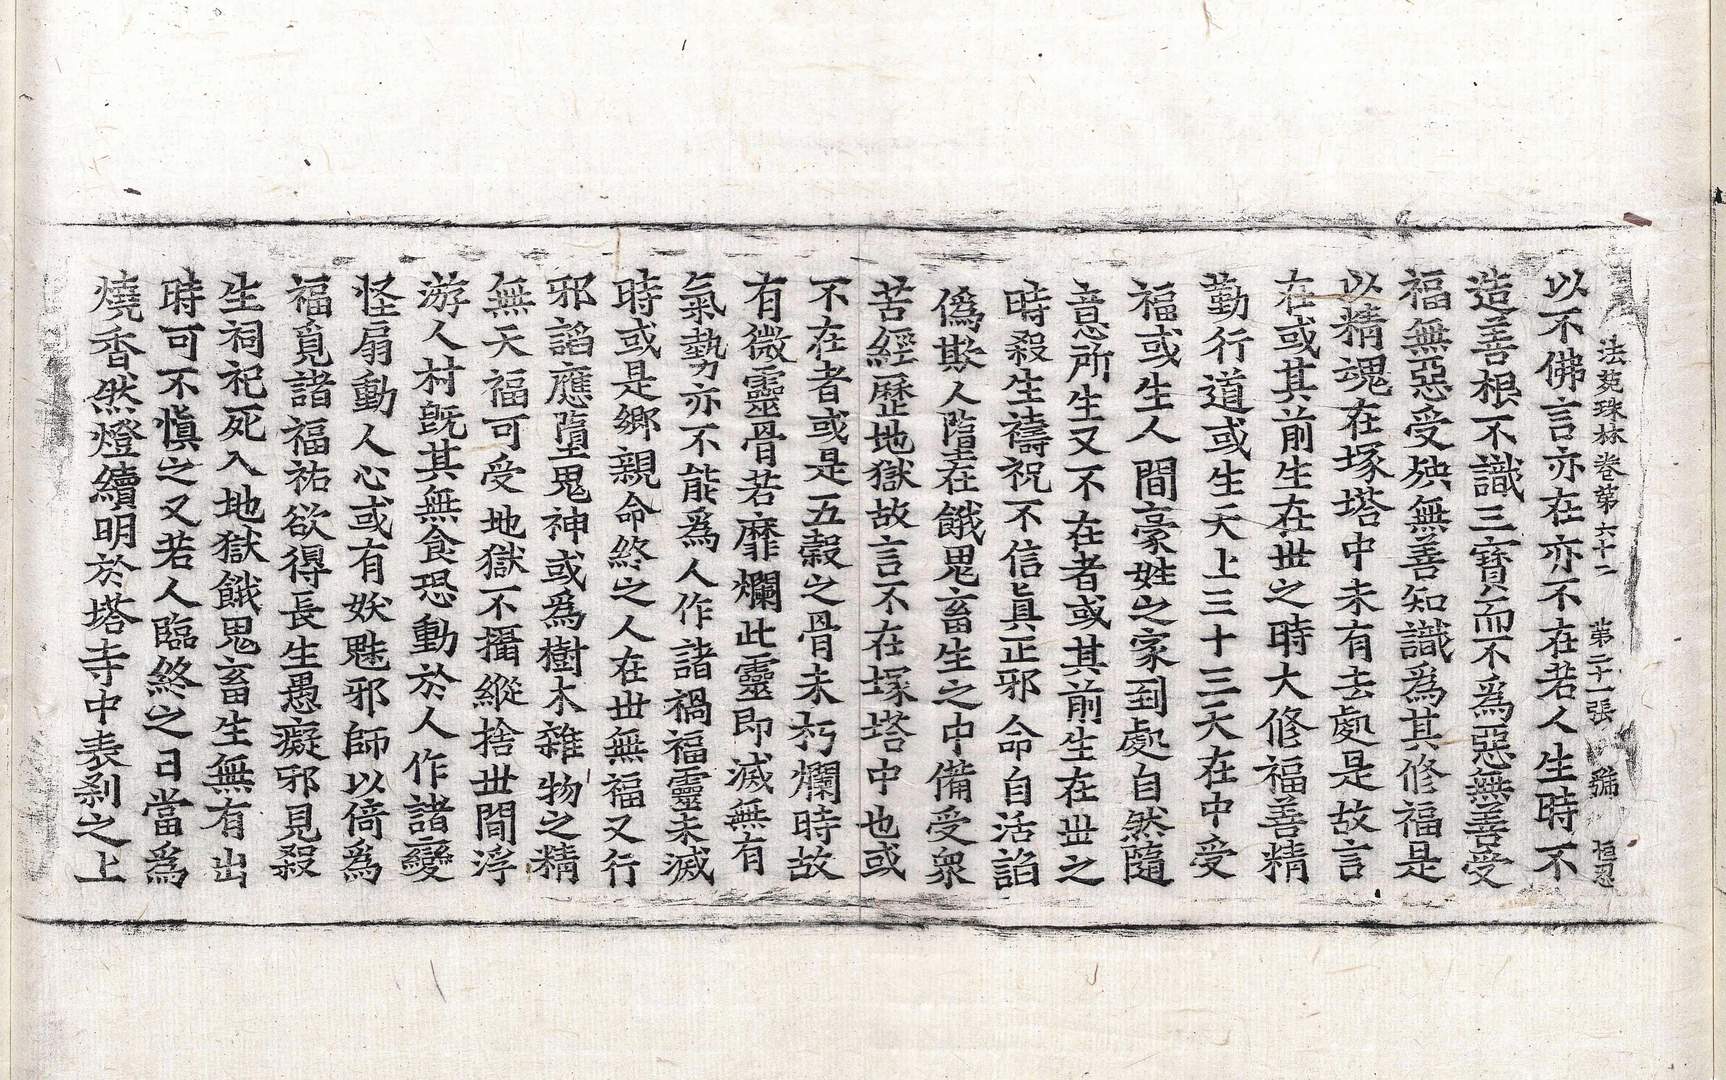 法苑珠林卷第六十二 第二十一張 號 恒忍
以不佛言亦在亦不在若人生時不
造善根不識三寶而不爲惡無善受
福無惡受殃無善知識爲其修福是
以精魂在塚塔中未有去處是故言
在或其前生在世之時大修福善精
勤行道或生天上三十三天在中受
福或生人間豪姓之家到處自然隨
意所生又不在者或其前生在世之
時殺生禱祝不信眞正邪命自活諂
僞欺人墮在餓鬼畜生之中備受衆
苦經歷地獄故言不在塚塔中也或
不在者或是五穀之骨未朽爛時故
有微靈骨若靡爛此靈即滅無有
氣勢亦不能爲人作諸禍福靈未滅
時或是鄉親命終之人在世無福又行
邪諂應墮鬼神或爲樹木雜物之精
無天福可受地獄不攝縱捨世間浮
游人村旣其無食恐動於人作諸變
怪扇動人心或有妖魅邪師以倚爲
福覓諸福祐欲得長生愚癡邪見殺
生祠祀死入地獄餓鬼畜生無有出
時可不愼之又若人臨終之日當爲
燒香然燈續明於塔寺中表刹之上